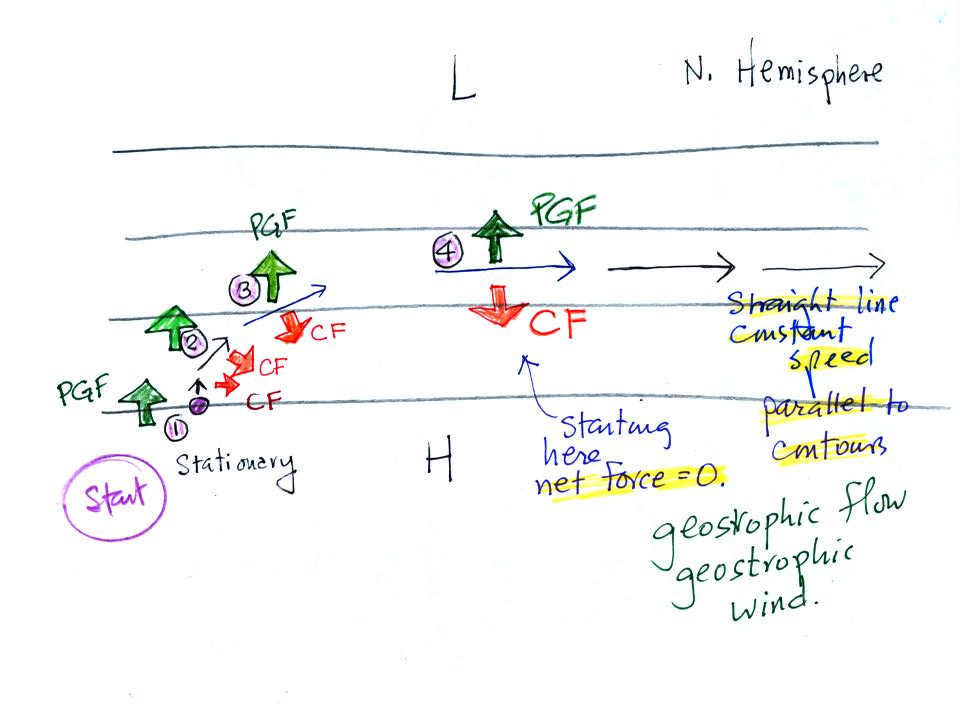 L
N. Hemisphere
PGF
PGF
4
3
CF
CF
2
CF
PGF
CF
1
Straight line
constant
speed
parallel to
contours
Starting
here
net force = 0.
Stationary
H
Start
geostrophic flow
geostrophic
wind.